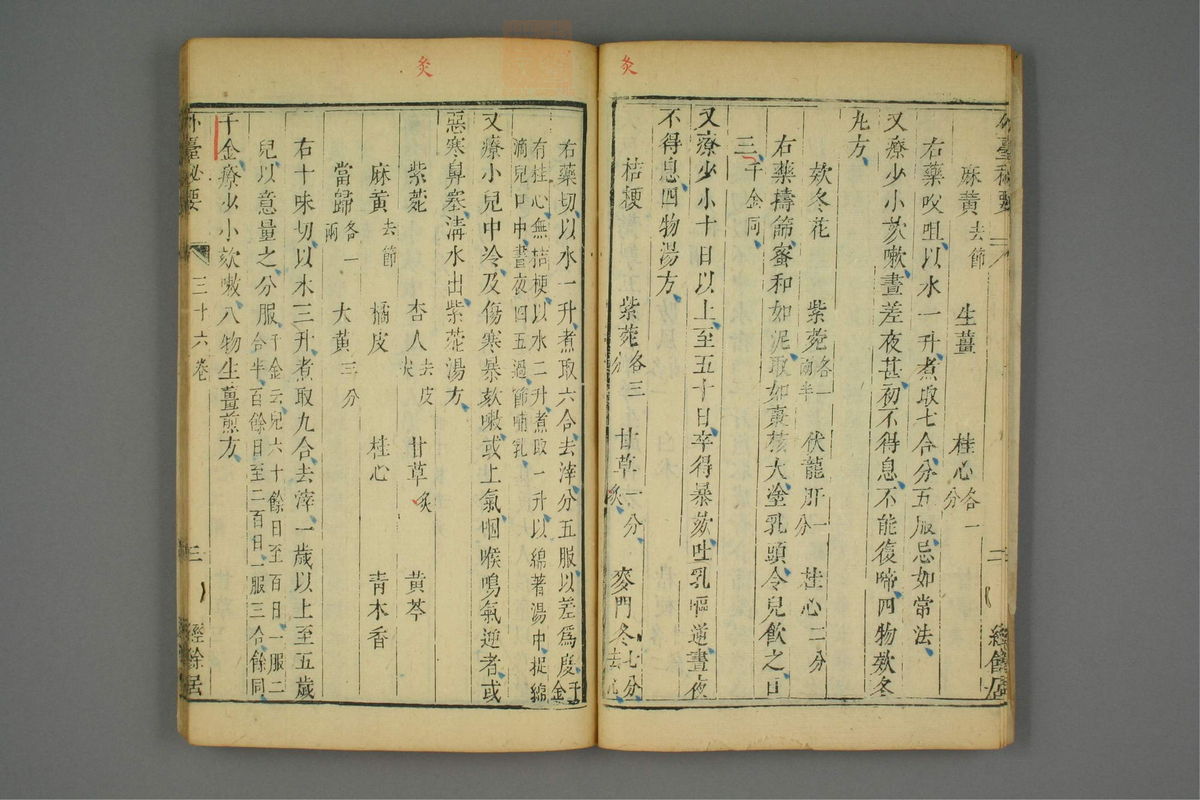 灸
麻黃去節 生薑 桂心各一分
右藥㕮咀以水一升煮取七合分五服忌如常法
又療少小欬嗽晝差夜甚初不得息不能復啼四物欬冬
丸方
欬冬花 紫菀各一兩半 伏龍肝一分 桂心二分
右藥擣篩蜜和如泥取如棗核大塗乳頭令兒飲之日
三千金同
又療少小十日以上至五十日卒得暴欬吐乳嘔逆晝夜
不得息四物湯方
桔梗 紫菀各三分 甘草一分炙 麥門冬七分去心
灸
右藥切以水一升煮取六合去滓分五服以差爲度千金
有桂心無桔梗以水二升煮取一升以綿著湯中捉綿
滴兒口中晝夜四五過節哺乳
又療小兒中冷及傷寒暴欬嗽或上氣咽喉鳴氣逆者或
惡寒鼻塞淸水出紫菀湯方
紫菀 杏人去皮尖 甘草炙 黃芩
麻黃去節 橘皮 桂心 青木香
當歸各一兩 大黃三分
右十味切以水三升煮取九合去滓一歲以上至五歲
兒以意量之分服千金云兒六十餘日至百日一服二
合半百餘日至二百日一服三合餘同
千金療少小欬嗽八物生薑煎方
外臺秘要 三十六卷 三 經餘居